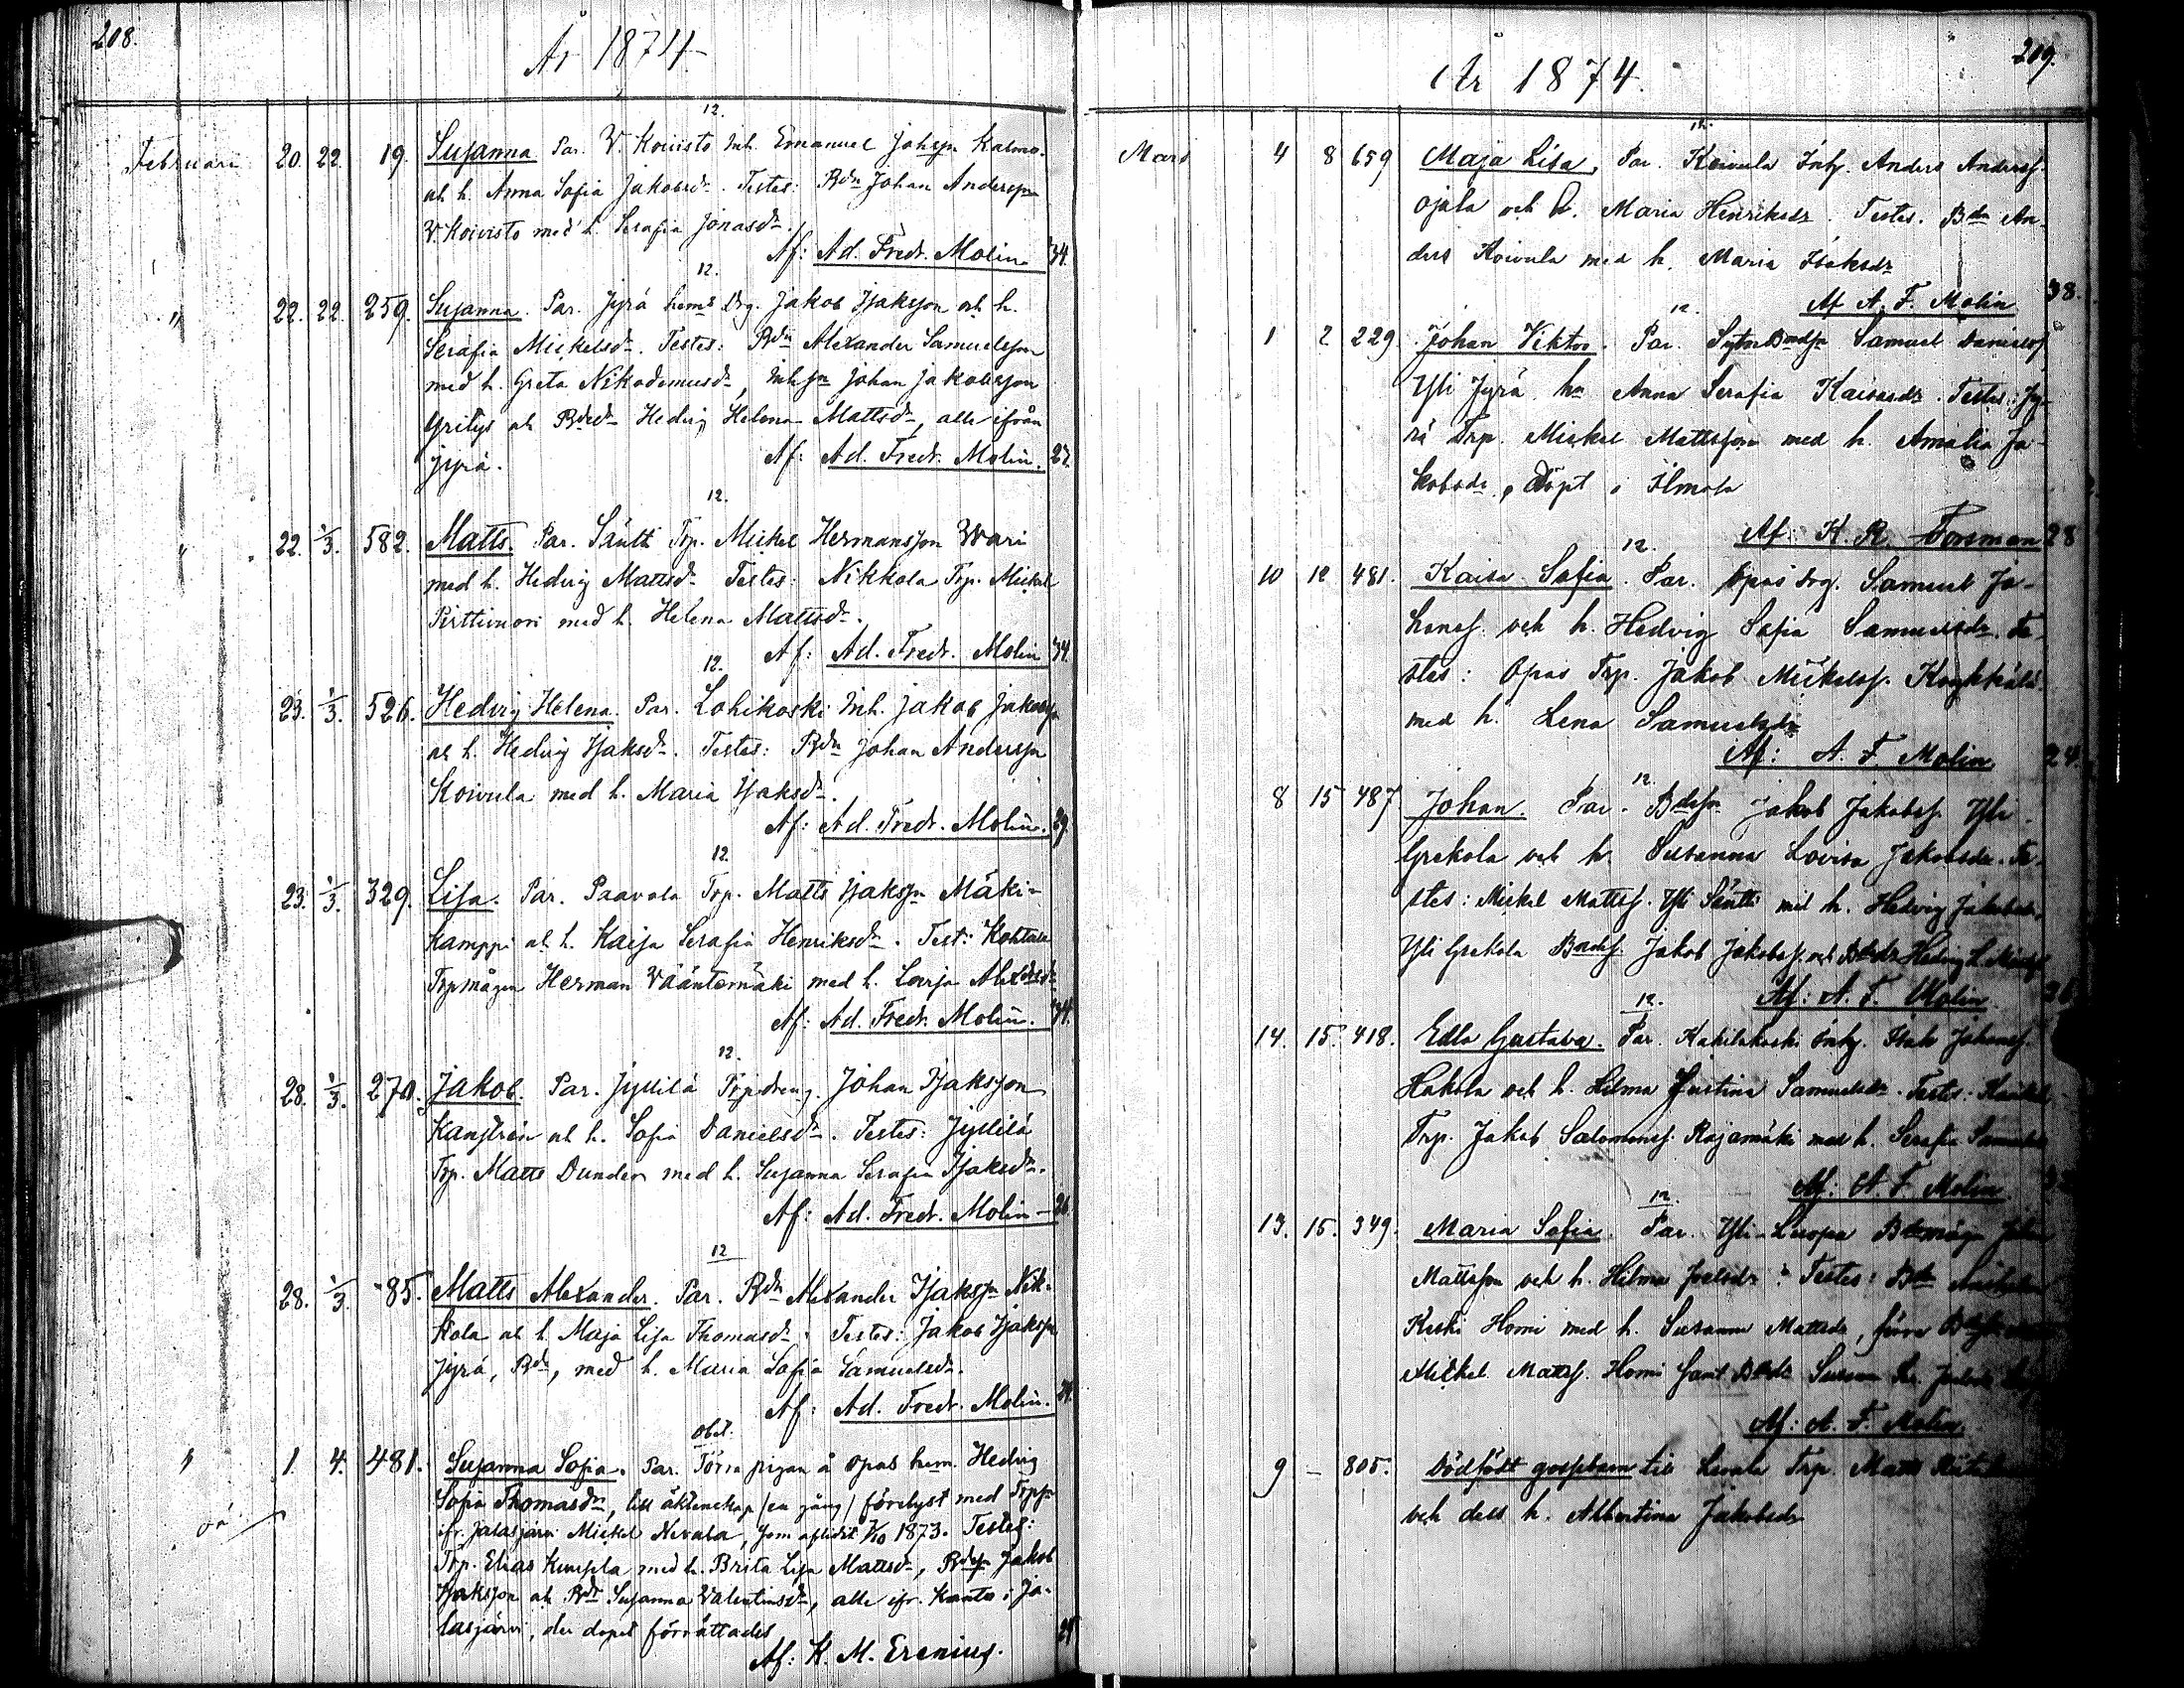 208.
År 1874
12.
Februari 20. 22. 19. Susanna Par. W. Koivisto Inh. Emanuel Johsn Kalmo-
och h. Anna Sofia Jakobsdr. Testes: Bdn Johan Andersson
W. Koivisto med h. Serafia Jonasdr.
Af: Ad. Fredr. Molin 34.
12.
" 22. 22. 259. Susanna. Par. Jyrä hems Drg. Jakob Isaksson och h.
Serafia Mickelsdr. Testes: Bdn Alexander Samuelsson
med h. Greta Nikodemusdr, Inhsn Johan Jakobsson
Yritys och Bdedr Hedvig Helena Mattsdr, alla ifrån
Jyrä. Af: Ad. Fredr. Molin. 27.
12.
" 22. 1/3. 582. Matts. Par. Säntti Trp. Mickel Hermansson Wari
med h. Hedvig Mattsdr Testes: Nikkola Trp. Mickel
Perttimori med h. Helena Mattsdr.
Af: Ad. Fredr. Molin 34.
12.
23. 1/3. 526. Hedvig Helena. Par. Lohikoski Inh. Jakob Jakobsn
och h. Hedvig Isaksdr. Testes: Bdn Johan Andersson
Koivula med h. Maria Isaksdr.
Af: Ad. Fredr. Molin. 29.
12.
23. 1/3. 329. Lisa. Par. Paavola Trp. Matts Isakssn Mäki-
kamppi och h. Kaisa Serafia Henriksdr. Test:
Trpmågen Herman Vääntemäki med h. Lovisa Alexdersdr
Af: Ad. Fredr. Molin. 34.
12.
28. 1/3. 270. Jakob. Par. Jyllilä Trpdreng. Johan Isaksson
Kangtrén och h. Sofia Danielsdr. Testes: Jyllilä
Trp. Matts Dunder med h. Susanna Serafia Isaksdr.
Af: Ad. Fredr. Molin - 26.
12
28. 1/3. 85. Matts Alexander. Par. Bdn Alexander Isakssn Nik-
kola och h. Maja Lisa Thomasdr. Testes: Jakob Isakssn
Jyrä, Bdn, med h. Maria Sofia Samuelsdr.
Af: Ad. Fredr. Molin. 34.
obel.
" 1. 4. 481. Susanna Sofia. Par. Förra pigan å Opas hem. Hedvig
Sofia Thomasdr, till äktenskap (en gång) förelyst med Trpsn
ifr. Jalasjärvi Mickel Nevala, som aflidit 7/10 1873. Testes:
Trp. Elias Kumpla med h. Brita Lisa Mattsdr, Bdesn Jakob
Isaksson och Bdr Susanna Valentinsdr, alla ifr. Kanto i Ja-
lasjärvi, der dopet förrättades 24
Af: K. M. Erenius.
209.
År 1874.
12.
Mars 4 8 659 Maja Lisa, Par. Koivula Inhs. Anders Anderss.
Ojala och h. Maria Henriksdr. Testes. Bdn An-
ders Koivula med h. Maria Isaksdr
Af A. F. Molin 38.
12.
1 2 229 Johan Viktor. Par. Samuel Danielss
Yli Jyrä hn Anna Serafia Kaisasdr. Testes: Jy-
rä Trp. Mickel Mattsson med h. Amalia Ja-
kobsdr, döpt i Ilmola
Af: K. R. Forsman 28
12.
10 12 481. Kaisa Sofia. Par. Opas Drg. Samuel Jo-
hanss. och h. Hedvig Sofia Samuelsdr. Te-
stes: Opas Trp. Jakob Mickelss. Koukkälä
med h. Lena Samuelsdr
Af: A. F. Molin 24.
12.
8 15 487 Johan. Par. Bdesn Jakob Jakobss. Yli
Grekola och h. Susanna Lovisa Jakobsdr. Te-
stes: Mickel Mattss. Yli Säntti med h. Hedvig Jakobsdr,
Yli Grekola Bndes. Jakob Jakobss. och Bdedr Hedvig L.
Af: A. F. Molin.
12.
14. 15. 418. Edla Gustava. Par. Kahilakoski Inhs. Isak Johanss.
Hakola och h. Hilma Justina Samuelsdr. Testes:
Trp. Jakob Salomonss. Rajamäki med h. Serafia
Af: A. F. Molin
12.
13. 15. 349. Maria Sofia. Par. Yli-Luopa Bdemåg
Mattsson och h. Hilma Joelsdr. Testes: Bdn
Keski Homi med h. Susanna Mattsdr, förra
Mickel Mattss. Homi samt Bdedr
Af: A. F. Molin.
9 - 805. Dödfödt gossebarn till Trp. Matts
och dess h. Albertina Jakobsdr